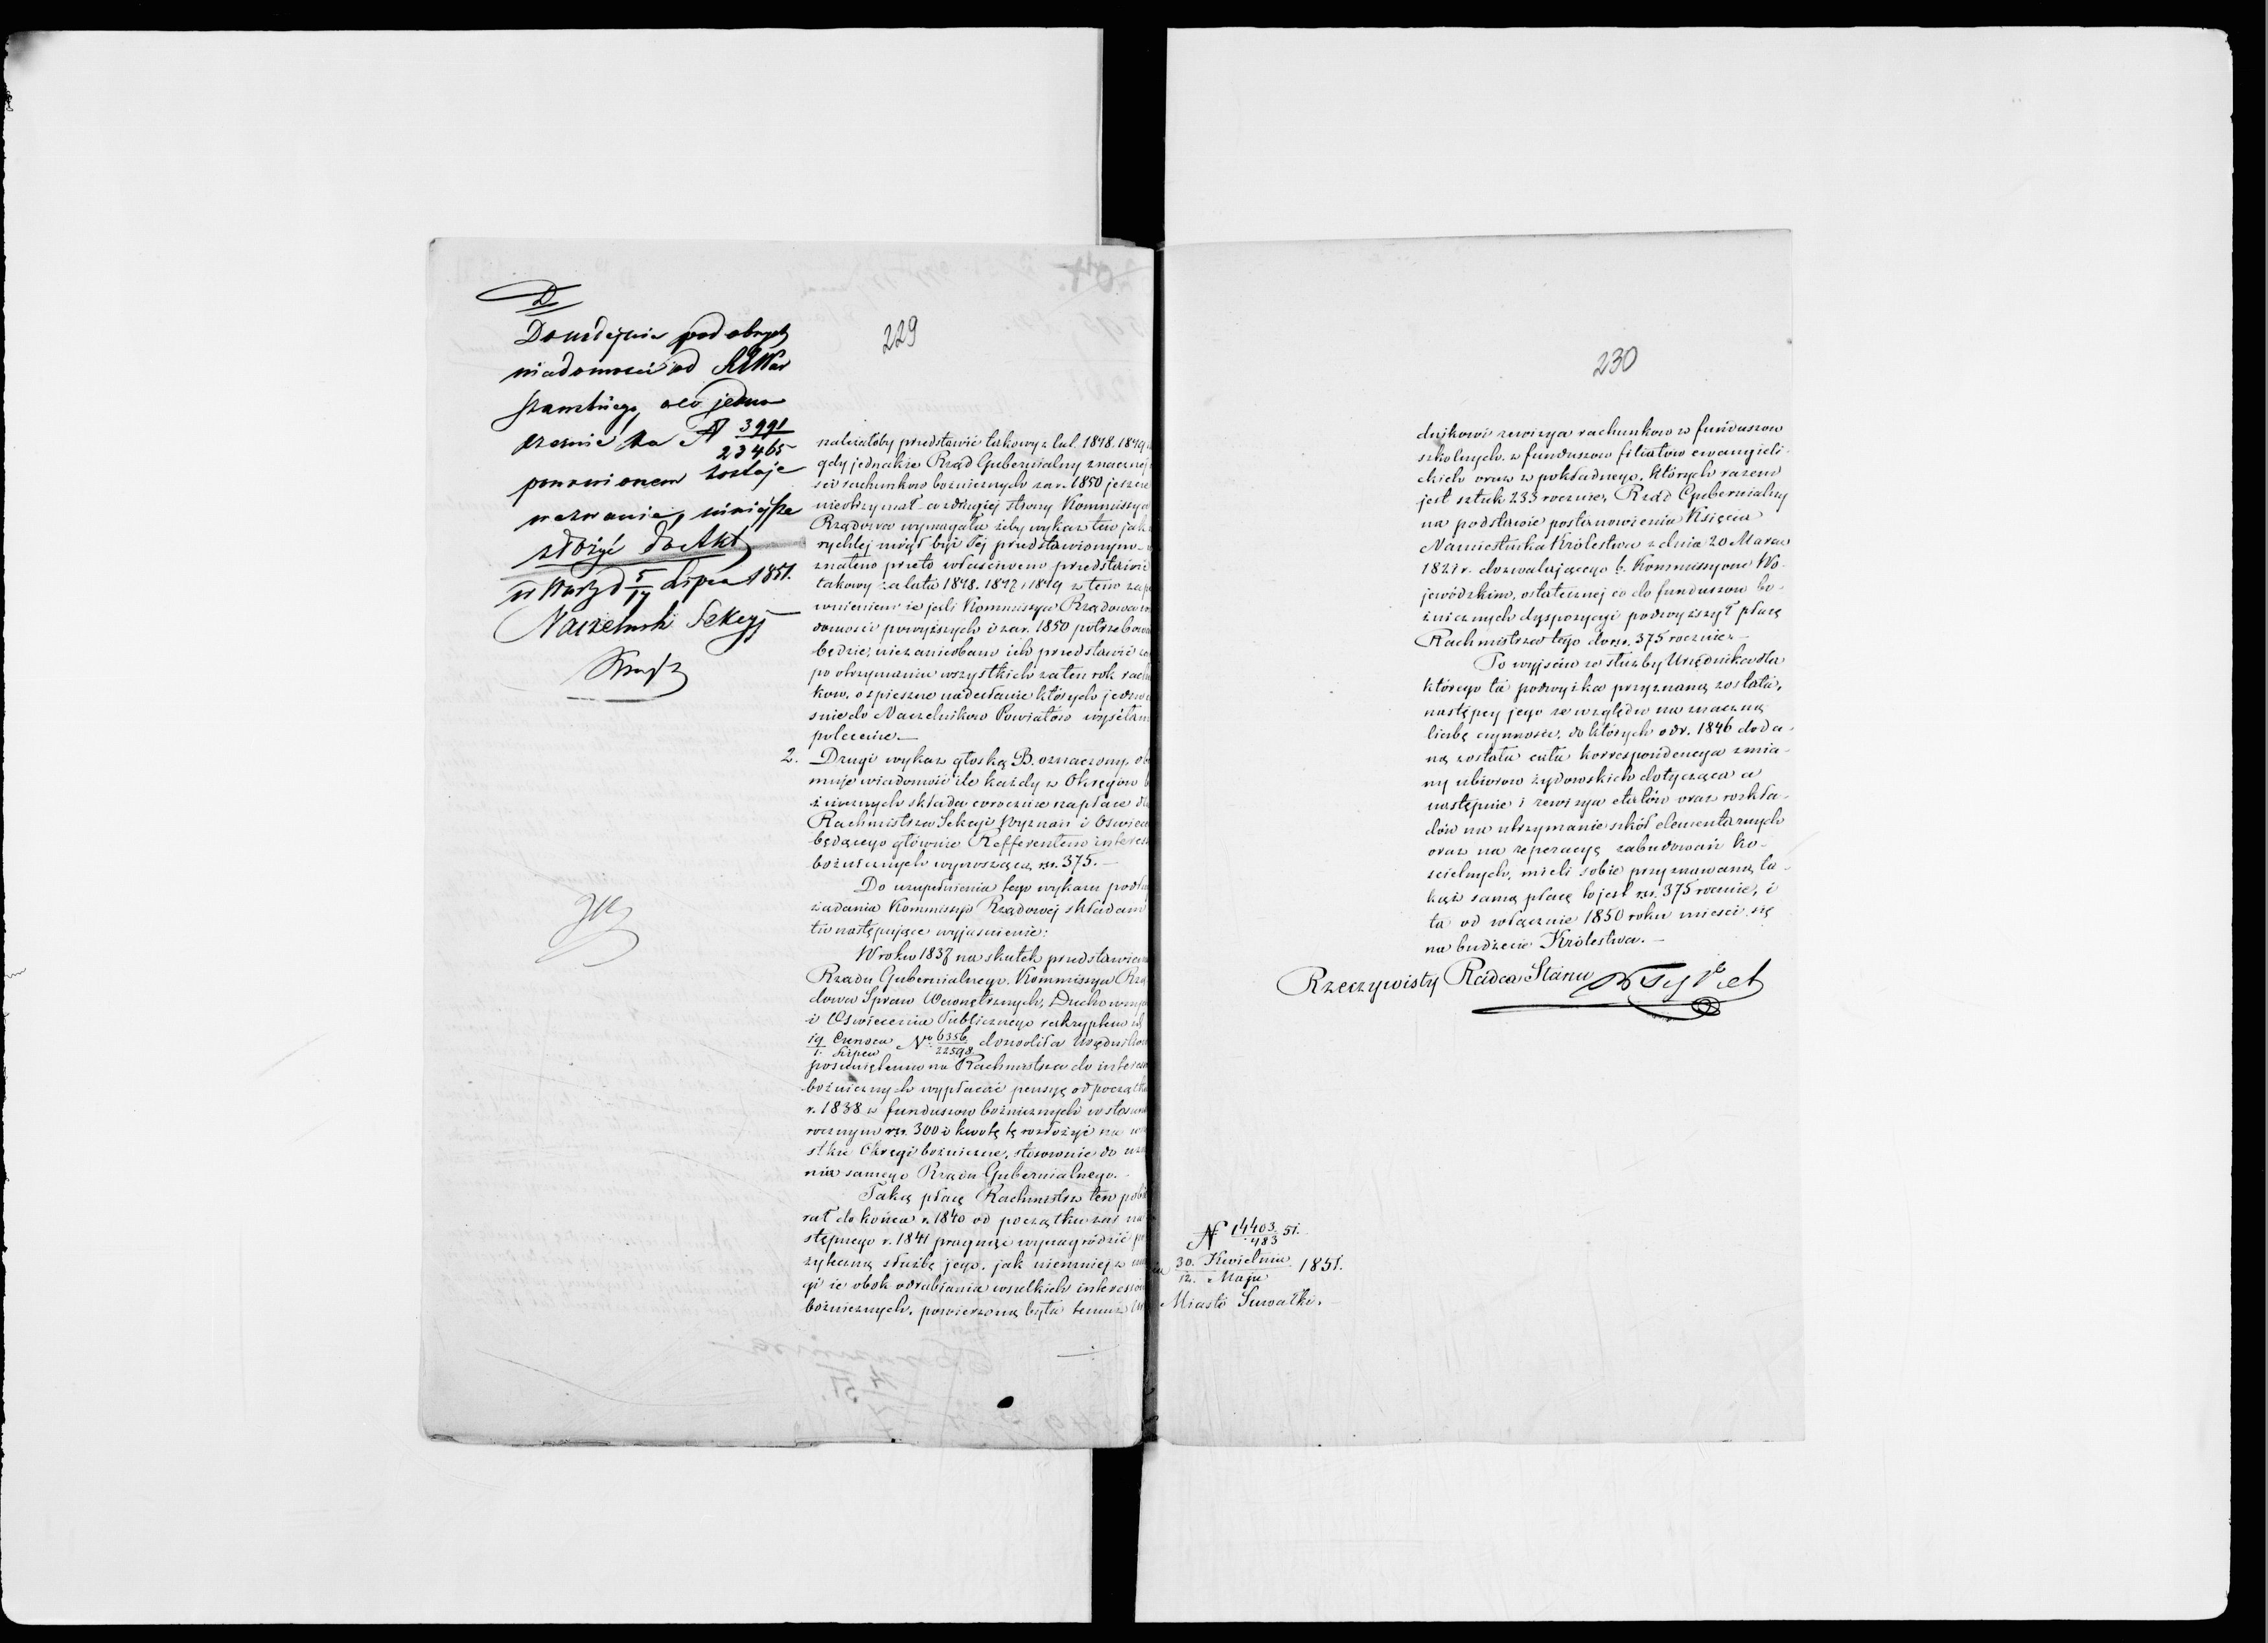 D
229
wiadomości od
jedno
cześnie za N 3991
23465
ponowionem zostaje
wezwanie, niniejsze
złożyć do Akt
w Warsz d 5/17 Lipca 1851.
Naczelnik Sekcyi
należałoby przedstawić takowy z lat. 1848. 1849
gdy jednakże Rząd Gubernialny znacznej
ści rachunków bożniczych za r. 1850 jeszcze
nieotrzymał a z drugiej strony Kommissya
Rządowa wymagała żeby wykaz ten jak
rychlej mógł być Jej przedstawionym
znalazło przeto właściwem przedstawić
takowy za lata 1848. 1847 i 1849 z tem zape
wnieniem że jeśli Kommissya Rządowa
domości powyższych i za r. 1850 potrzebować
będzie, niezaniedbam ich przedstawić
po otrzymaniu wszystkich za ten rok rachun
ków, o spieszne nadesłanie których jednocze
śnie do Naczelników Powiatów wysełam
polecenie.—
2. Drugi wykaz głoską B. oznaczony, obej
muje wiadomość ile każdy z Okręgów bo
żniczych składa corocznie na płacę dla
Rachmistrza Sekcyi Wyznań i Oświece
będącego głównie Refferentem interess
bożniczych wynoszącą rsr. 375.—
Do uzupełnienia tego wykazu podług
żądania Kommissyi Rządowej składam
tu następujące wyjaśnienie:
W roku 1837 na skutek przedstawienia
Rządu Gubernialnego. Kommissya Rzą
dowa Spraw Wewnętrznych, Duchownych
i Oświecenia Publicznego reskryptem z d.
19 Czerwca / 1. Lipca No 6356/22598 dozwoliła Urzędnikowi
poświęconemu na Rachmistrza do interess
bożniczych wypłacać pensyę od początku
r. 1838 z funduszów bożniczych w stosunku
rocznym rsr. 300 i kwotę tę rozłożyć na wszy
stkie Okręgi bożnicze, stosownie do uzna
nia samego Rządu Gubernialnego.
Taką płacę Rachmistrz ten pobie
rał do końca r. 1840 od początku zaś na
stępnego r. 1841 pragnąc wynagrodzić po
żyteczną służbę jego. jak niemniej z uwa
gi że obok odrabiania wszelkich interessów
bożniczych, powierzoną była temuż Urzę
230
dnikowi rewizya rachunków z funduszów
szkolnych. z funduszów filiałów ewangieli-
ckich oraz z pokładnego, których razem
jest sztuk 233 rocznie, Rząd Gubernialny
na podstawie postanowienia Księcia
Namiestnika Królestwa z dnia 20 Marca
1821 r. dozwalającego b. Kommissyom Wo-
jewódzkim, ostatecznej co do funduszów bo-
żniczych dyspozycyi podwyższył płacę
Rachmistrza tego do rsr. 375 rocznie.—
Po wyjściu ze służby Urzędnika dla
którego ta podwyżka przyznaną została,
następcy jego ze względu na znaczną
liczbę czynności, do których od r. 1846 doda-
ną została cała korrespondencya zmia-
ny ubiorów żydowskich dotycząca a
następnie i rewizya etatów oraz rozkła-
dów na utrzymanie szkół elementarnych
oraz na reperacyę zabudowań ko-
ścielnych, mieli sobie przyznawaną ta-
kąż samą płacę to jest rsr. 375 rocznie, i
ta od włącznie 1850 roku mieści się
na budżecie Królestwa.—
Rzeczywisty Radca Stanu
N 14403/483 51.
30. Kwietnia / 12. Maja 1851.
Miasto Suwałki.